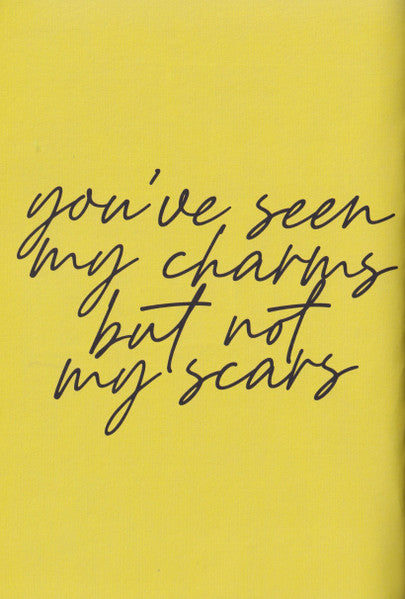 you've seen
my charms
but not
my scars